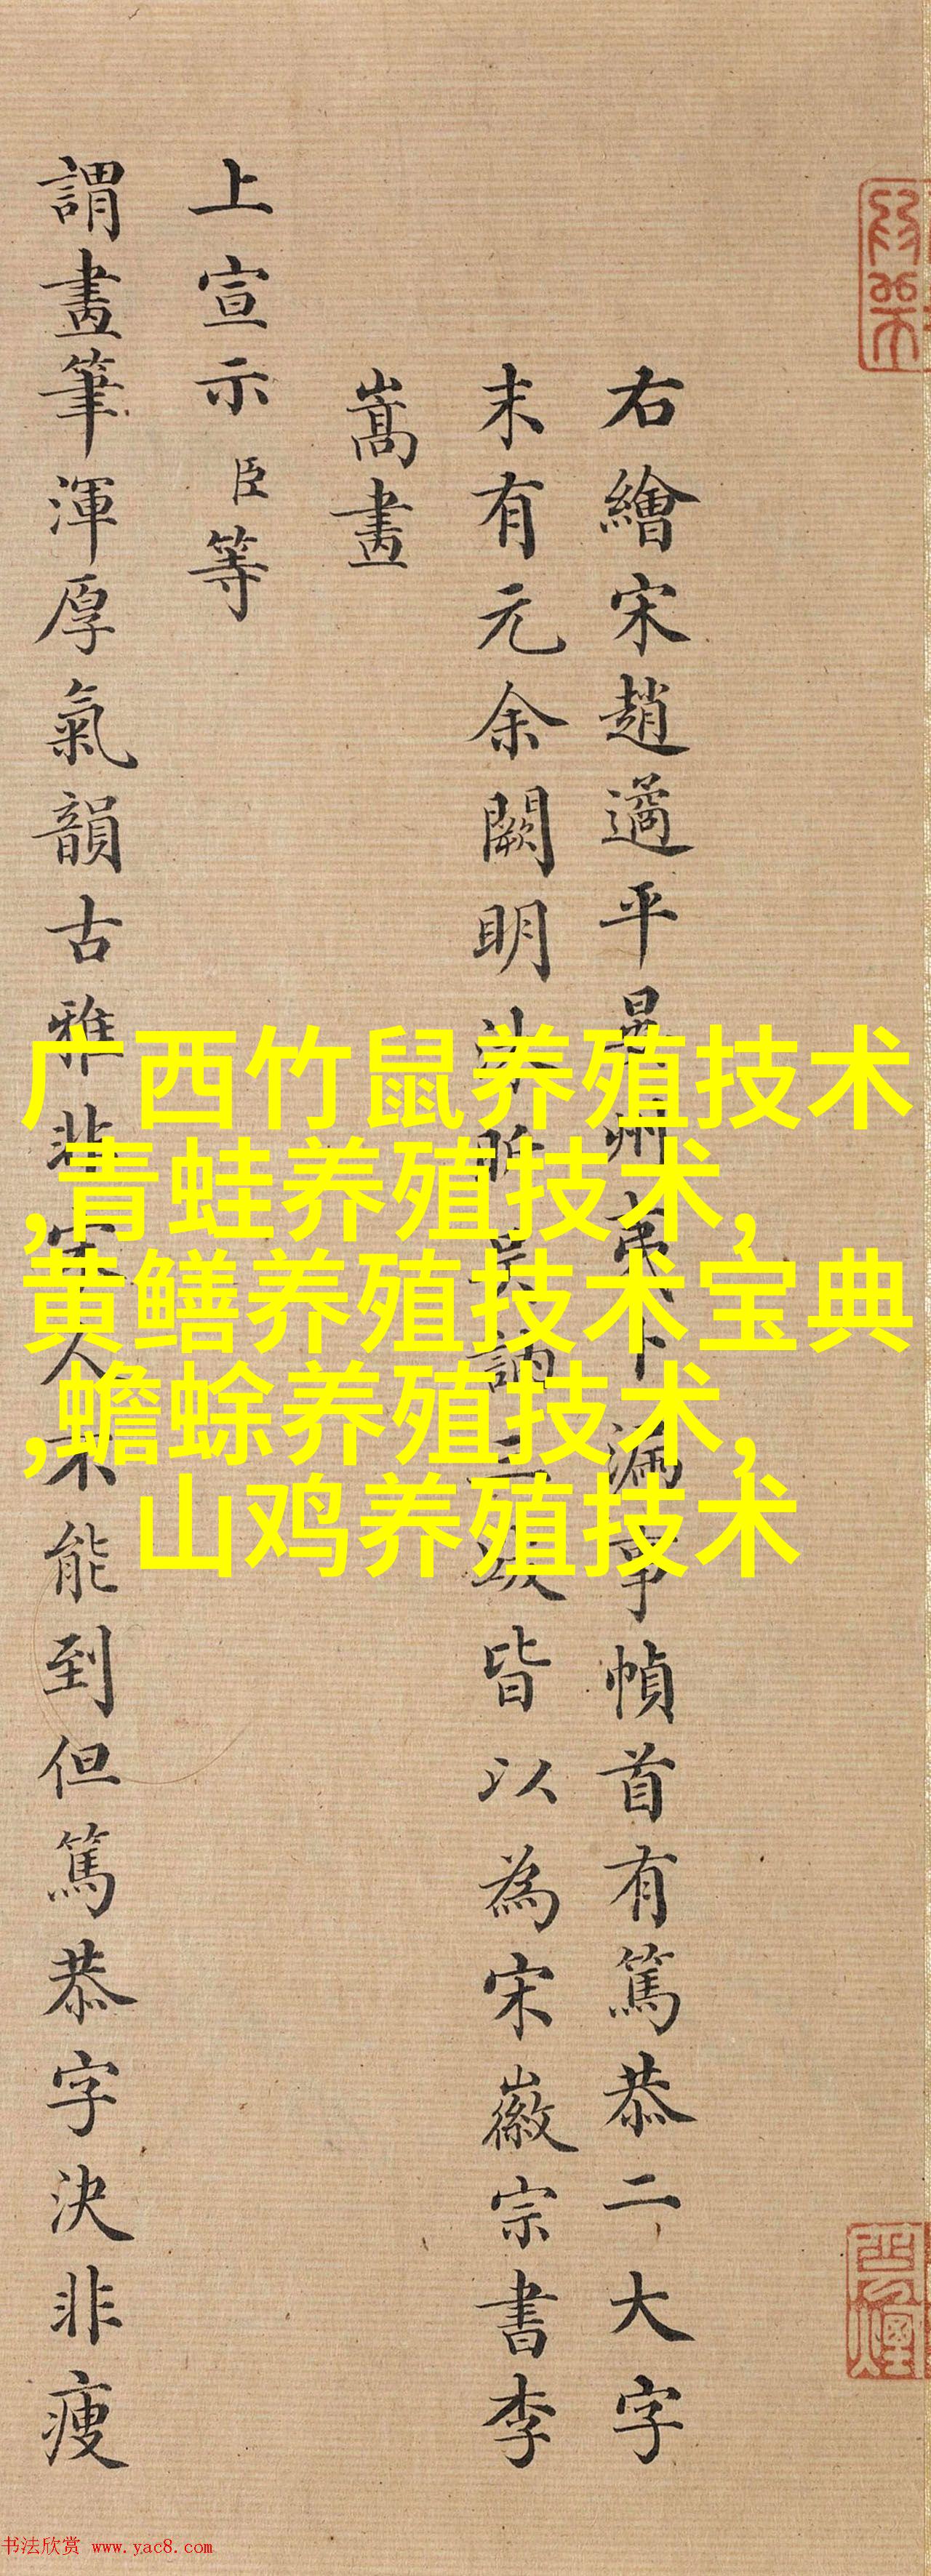 右繪宋趙遹平晏州夷卜漏事幀首有篤恭二大字
末有元余闕明沐昕吳訥三跋皆以為宋徽宗書李
嵩畫
上宣示臣等
謂畫筆渾厚氣韻古雅非宋人不能到但篤恭字決非瘦
广西竹鼠养殖技术
,青蛙养殖技术,
黄鳝养殖技术宝典
,蟾蜍养殖技术,
山鸡养殖技术
书法欣赏 www.yac8.com